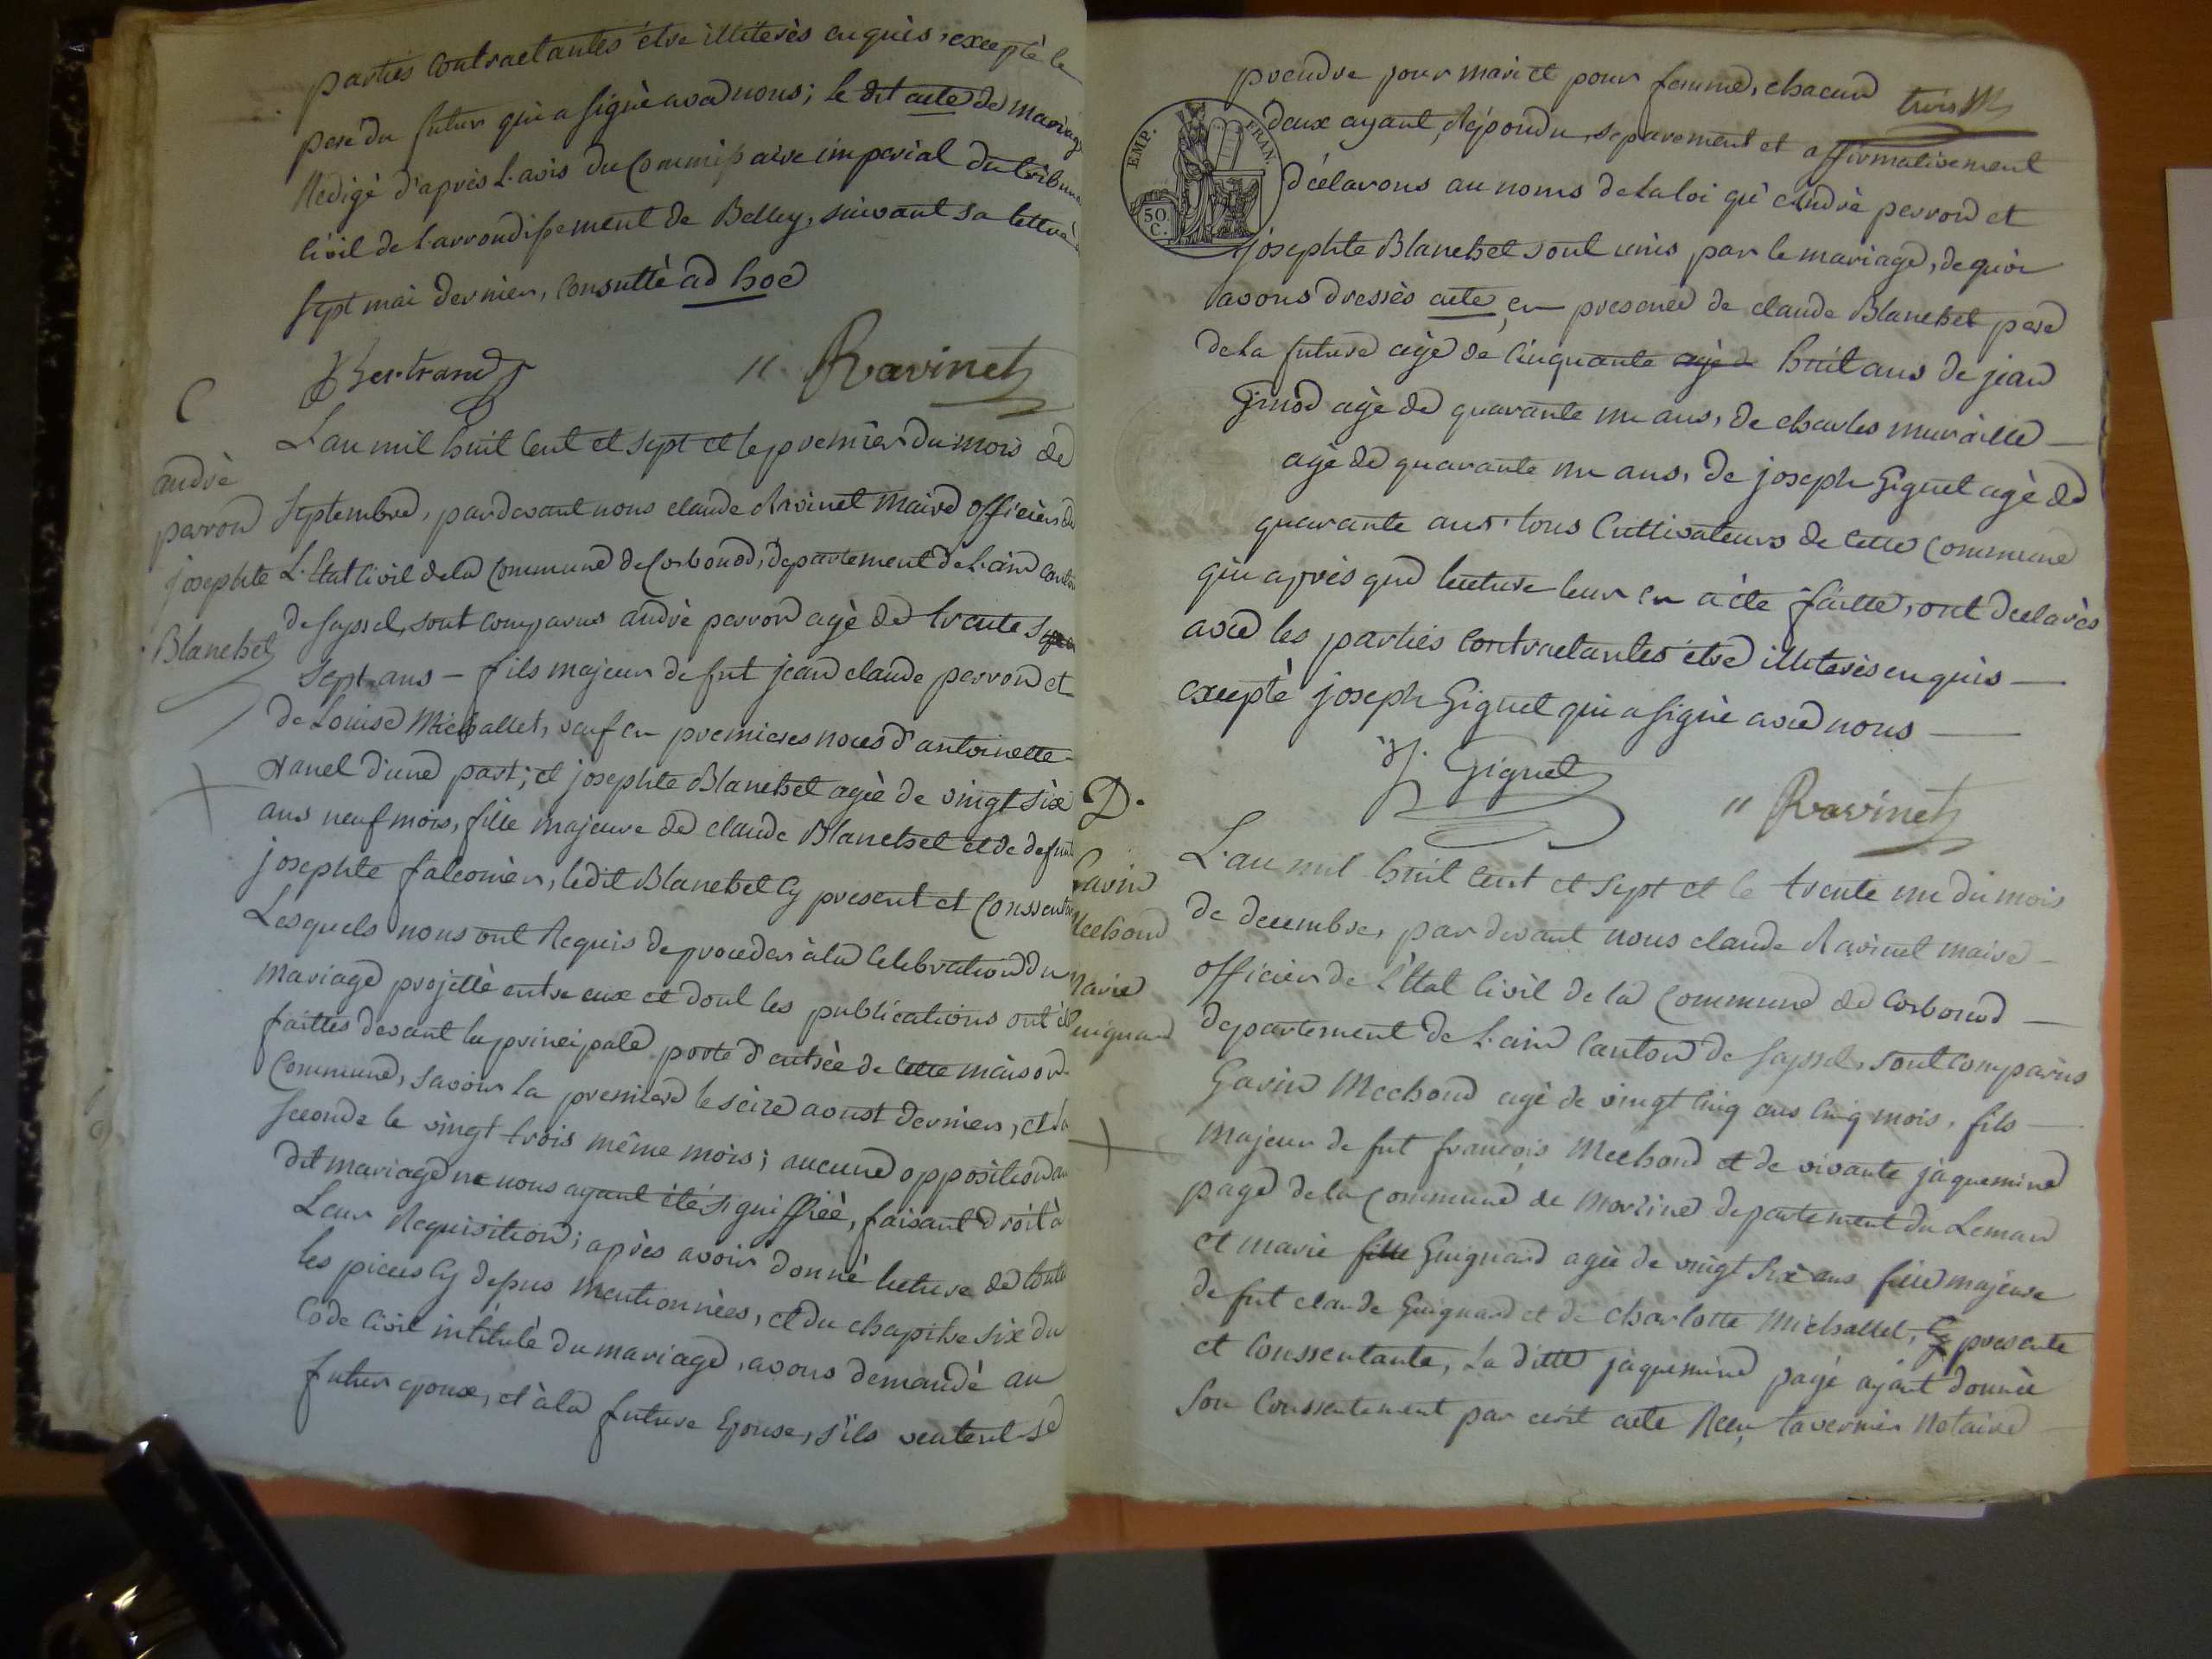 parties Contractantes être illiterès enquis, exceptè le
pere du futur qui a signè avec nous; le dit acte de mariage
Redigè d'après L'avis du Commissaire imperial du tribunal
Civil de l'arrondissement de Belley, suivant sa lettre
sept mai dernier, Consultè ad hoc
Bertrand
Ravinet
C
L'an mil huit Cent et sept et le premier du mois de
andrè
perron
josephte
Blanchet
Septembre, pardevant nous claude Ravinet Maire Officier de
L'Etat Civil de la Commune de Corbonod, departement de L'ain Canton
de seyssel, sont comparus andrè perron agè de trente
sept ans - fils majeur de fut jean claude perron et
de Louise Michallet, veuf en premieres noces d'antoinette
vanel d'une part; et josephte Blanchet agèe de vingt six
ans neuf mois, fille majeure de claude Blanchet et de defunte
josephte falconier, ledit Blanchet Cy present et Consentant
Lesquels nous ont Requis de proceder à la Celebration du
mariage projettè entre eux et dont les publications ont étè
faittes devant la principale porte d'entrèe de cette maison
Commune, savoir la premiere le seize aoust dernier, et la
seconde le vingt trois même mois; aucune opposition au
dit mariage ne nous ayant étè signiffièe, faisant droit à
Leur Requisition; après avoir donnè lecture de toutes
les pieces Cy dessus mentionnèes, et du chapitre six du
Code Civil intitulè du mariage, avons demandè au
futur epoux, et à la future Epouse, s'ils veulent se
prendre pour mari et pour femme, chacun
trois
EMP. FRAN.
50 C.
deux ayant Repondu separement et affirmativement
déclarons au noms de la loi qu'Andrè perron et
josephte Blanchet sont unis par le mariage, de quoi
avons dressès acte en presence de claude Blanchet pere
de la future agè de Cinquante agè de huit ans de jean
Ginod agè de quarante un ans, de charles muraille
agè de quarante un ans, de joseph Giguet agè de
quarante ans. tous Cultivateurs de cette Commune
qui après que lecture leur en a étè faitte, ont declarès
avec les parties Contractantes être illiterès enquis
exceptè joseph Giguet qui a signè avec nous
J. Giguet
Ravinet
D.
L'an mil huit Cent et sept et le trente un du mois
Gavin
Mechoud
Marie
Guignard
de decembre, par devant nous claude Ravinet maire
officier de L'Etat Civil de la Commune de Corbonod
departement de L'ain Canton de seyssel, sont comparus
Gavin Mechoud agè de vingt Cinq ans Cinq mois, fils
majeur de fut françois Mechoud et de vivante jaquemine
page de la Commune de Morzine departement du Leman
et marie fille Guignard agèe de vingt six ans fille majeure
de fut claude Guignard et de charlotte Michallet, Cy presente
et Conssentante, La ditte jaquemine page ayant donnèe
son Conssentement par ecrit acte Reçu tavernier Notaire